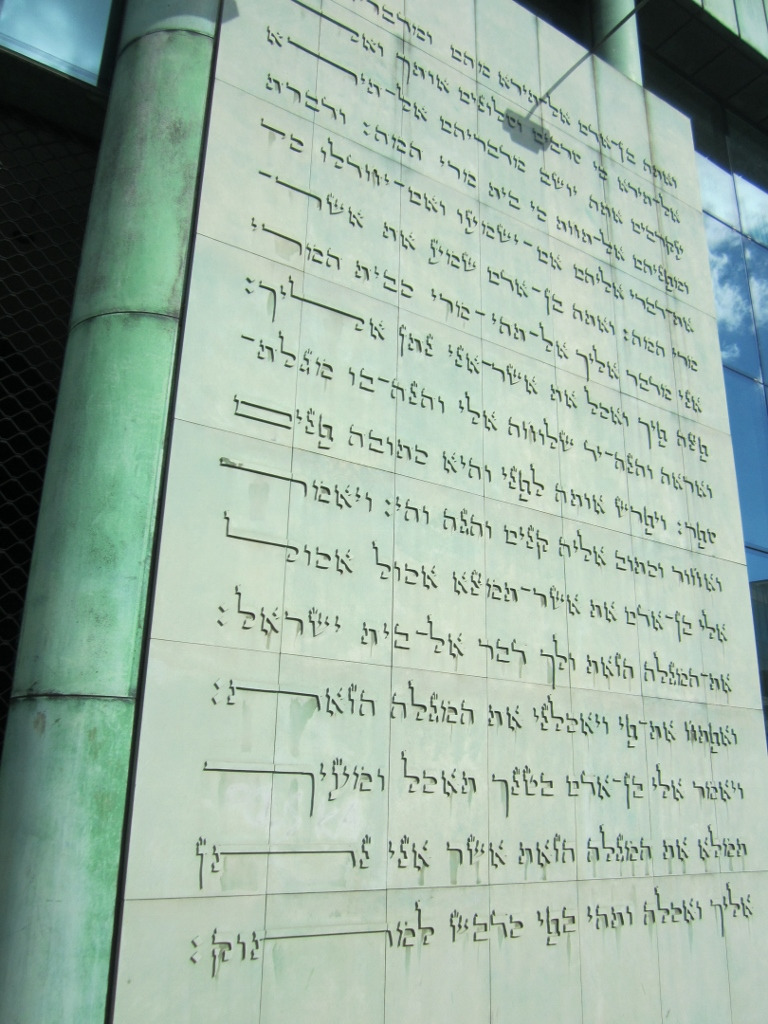 ואתה בן־אדם אל־תירא מהם
אל־תירא כי סרבים וסלונים אותך ואל־
עקרבים אתה יושב מדבריהם אל־תירא
ומפניהם אל־תחת כי בית מרי המה: ודברת
את־דברי אליהם אם־ישמעו ואם־יחדלו כי
מרי המה: ואתה בן־אדם שמע את אשר־
אני מדבר אליך אל־תהי־מרי כבית המרי
פצה פיך ואכל את אשר־אני נתן אליך:
ואראה והנה־יד שלוחה אלי והנה־בו מגלת־
ספר: ויפרש אותה לפני והיא כתובה פנים
ואחור וכתוב אליה קנים והגה והי: ויאמר
אלי בן־אדם את אשר־תמצא אכול אכול
את־המגלה הזאת ולך דבר אל־בית ישראל:
ואפתח את־פי ויאכלני את המגלה הזאת:
ויאמר אלי בן־אדם בטנך תאכל ומעיך
תמלא את המגלה הזאת אשר אני נתן
אליך ואכלה ותהי בפי כדבש למתוק: